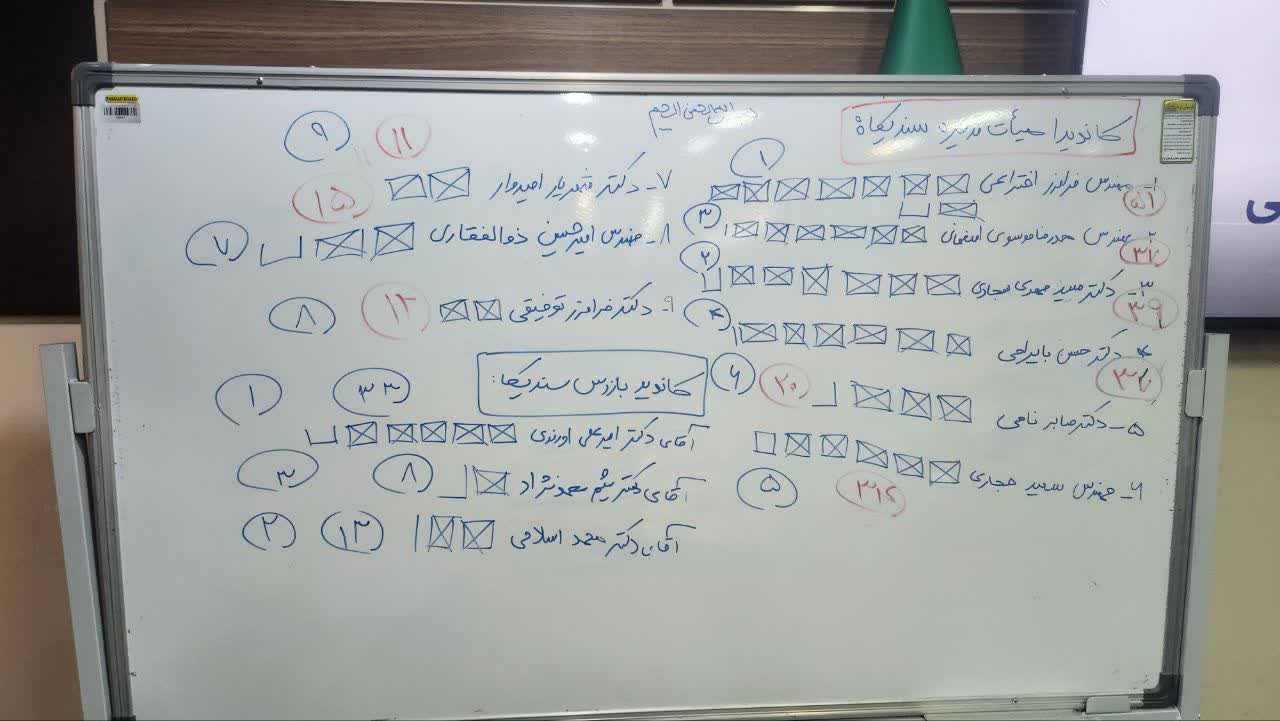 بسم الله الرحمن الرحیم
کاندیدا هیأت مدیره سندیکا
۱- مهندس فرامرز اختراعی
۱
۵۱
۲- مهندس حمیدرضا موسوی اصفهانی
۳
۳- دکتر سید مهدی حجازی
۲
۳۹
۴- دکتر حسن بابیراحی
۴
۵- دکتر صابر نامی
۲۰
۶
۶- مهندس سعید حجازی
۵
۹
۱۱
۷- دکتر شهریار امیدوار
۱۵
۸- مهندس امیرحسین ذوالفقاری
۷
۹- دکتر فرامرز توفیقی
۱۲
۸
کاندید بازرس سندیکا:
۳۳
۱
آقای دکتر امیرعلی اورندی
آقای دکتر میثم محمدنژاد
۸
۳
آقای دکتر محمد اسلامی
۱۳
۲
PARMAN BOARD